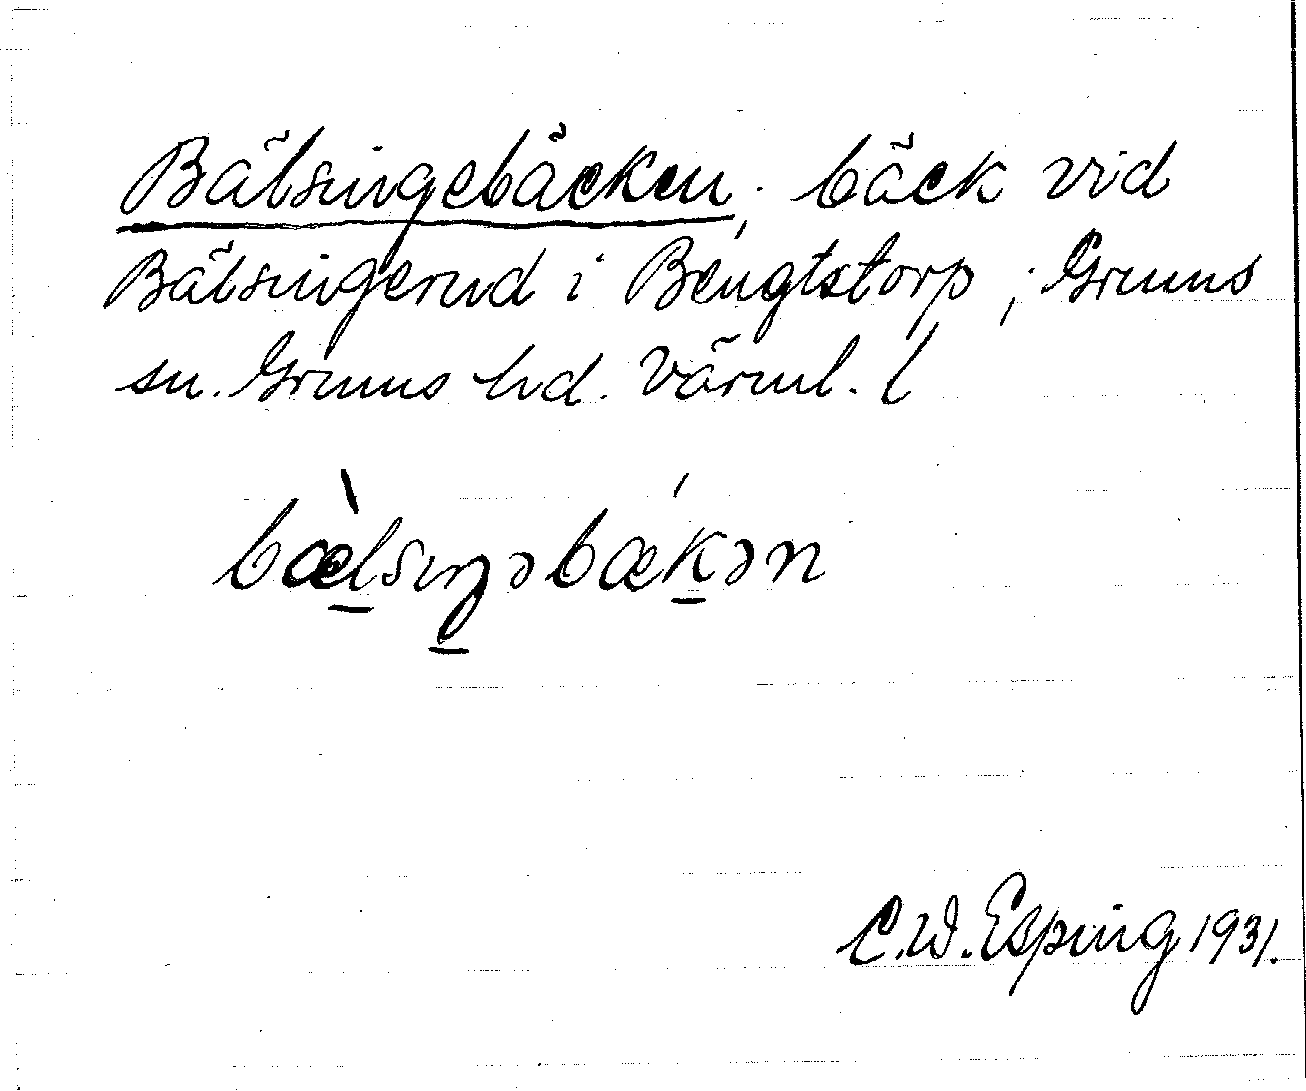 Bälsingebäcken; bäck vid
Bälsingerud i Bengtstorp; Grums
sn. Grums hd. Värml. l
bæ̀lsıŋəbækən
C.W. Esping 1931.